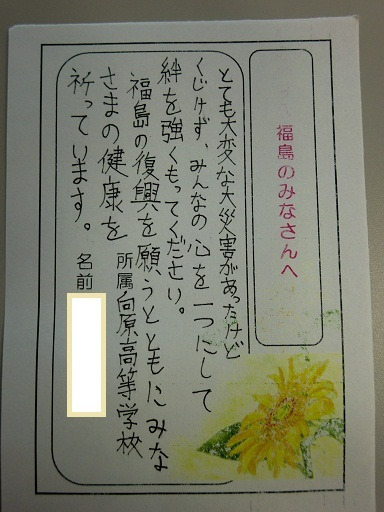 福島のみなさんへ
とても大変な大災害があったけど
くじけず、みんなの心を一つにして
絆を強くもってください。
福島の復興を願うとともにみな
さまの健康を
祈っています。
所属向原高等学校
名前